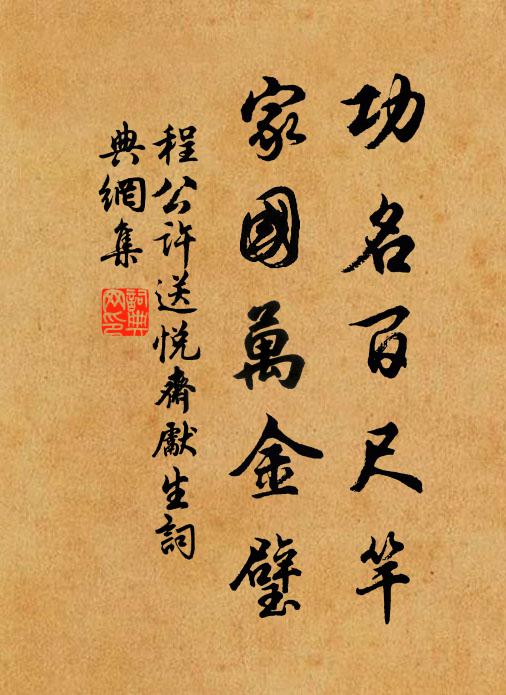 功名百尺竿
家國萬金璧
程公許送悅齋獻生詞
典網集
詞典網印